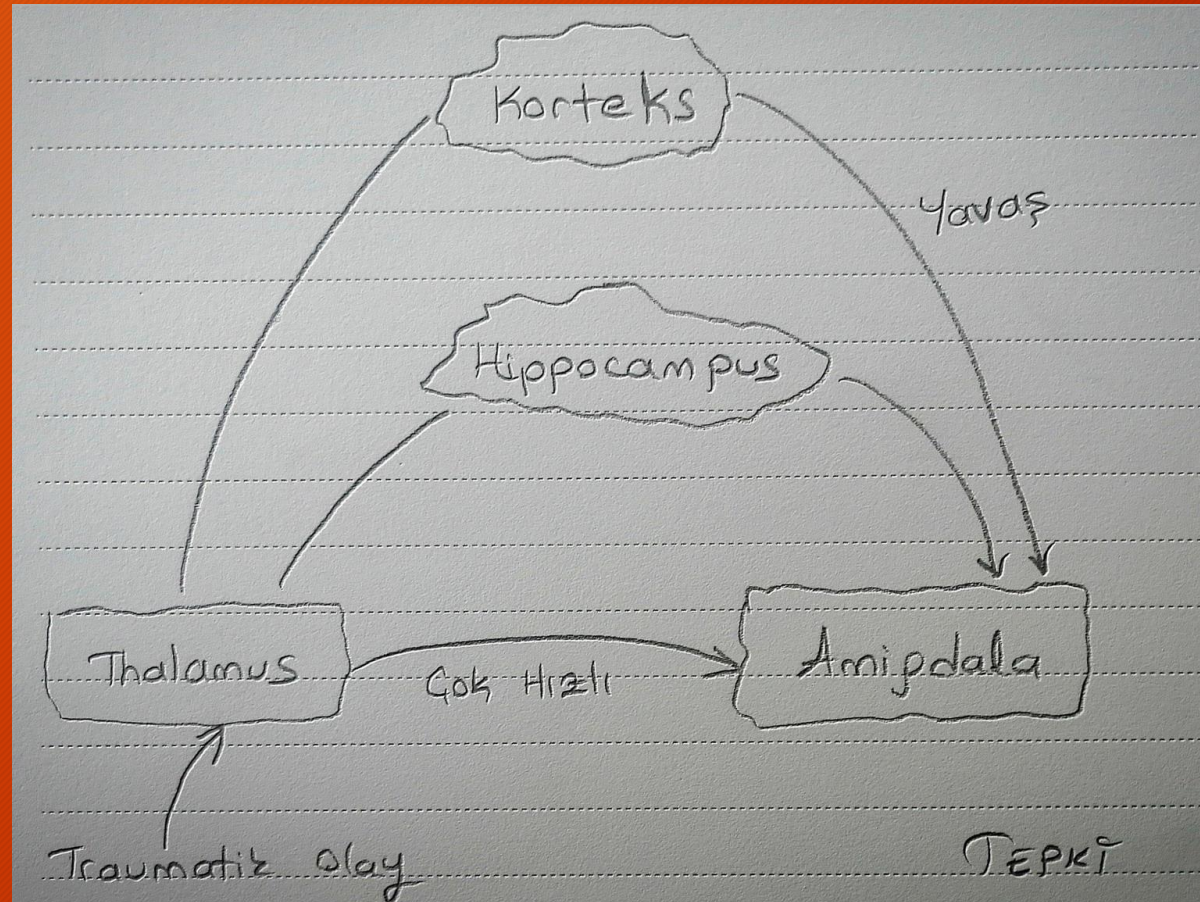 Korteks
Yavaş
Hippocampus
Thalamus
Çok Hızlı
Amipdala
Traumatik Olay
TEPKİ